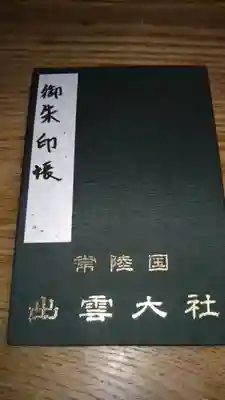 御朱印帳
常陸国
出雲大社